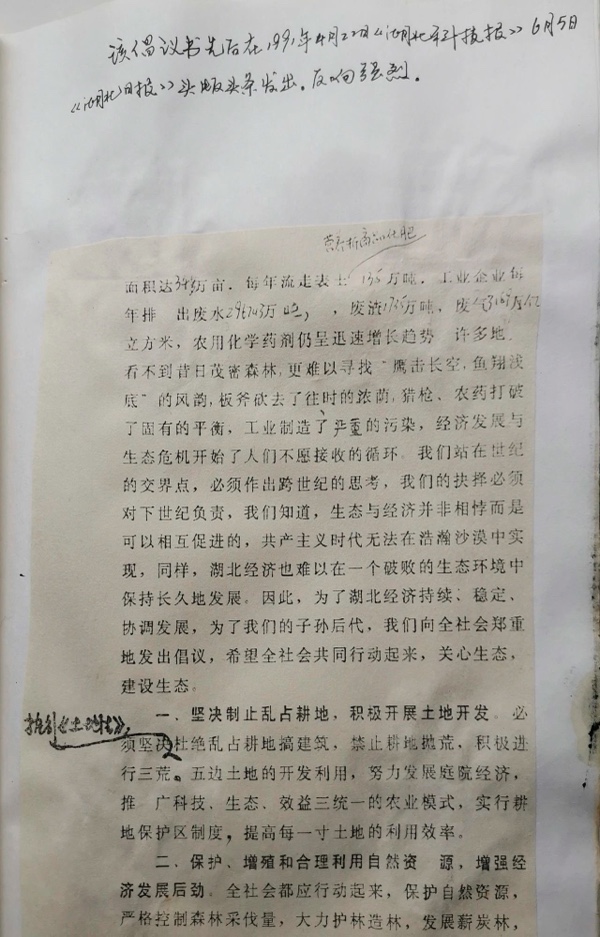 该倡议书先后在1991年4月22日《湖北科技报》6月5日
《湖北日报》头版头条发出。反响强烈。
面积达 万亩，每年流走表土 万吨，工业企业每
年排 出废水 万吨， 废渣 万吨，废气
立方米，农用化学药剂仍呈迅速增长趋势 许多地
看不到昔日茂密森林，更难以寻找“鹰击长空，鱼翔浅
底”的风韵，板斧砍去了往时的浓荫，猎枪、农药打破
了固有的平衡，工业制造了严重的污染，经济发展与
生态危机开始了人们不愿接收的循环。我们站在世纪
的交界点，必须作出跨世纪的思考，我们的抉择必须
对下世纪负责，我们知道，生态与经济并非相悖而是
可以相互促进的，共产主义时代无法在浩瀚沙漠中实
现，同样，湖北经济也难以在一个破败的生态环境中
保持长久地发展。因此，为了湖北经济持续、稳定、
协调发展，为了我们的子孙后代，我们向全社会郑重
地发出倡议，希望全社会共同行动起来，关心生态，
建设生态。
一、坚决制止乱占耕地，积极开展土地开发。必
须坚决杜绝乱占耕地搞建筑，禁止耕地抛荒，积极进
行三荒、五边土地的开发利用，努力发展庭院经济，
推 广科技、生态、效益三统一的农业模式，实行耕
地保护区制度，提高每一寸土地的利用效率。
二、保护、增殖和合理利用自然资 源，增强经
济发展后劲。全社会都应行动起来，保护自然资源，
严格控制森林采伐量，大力护林造林，发展薪炭林，